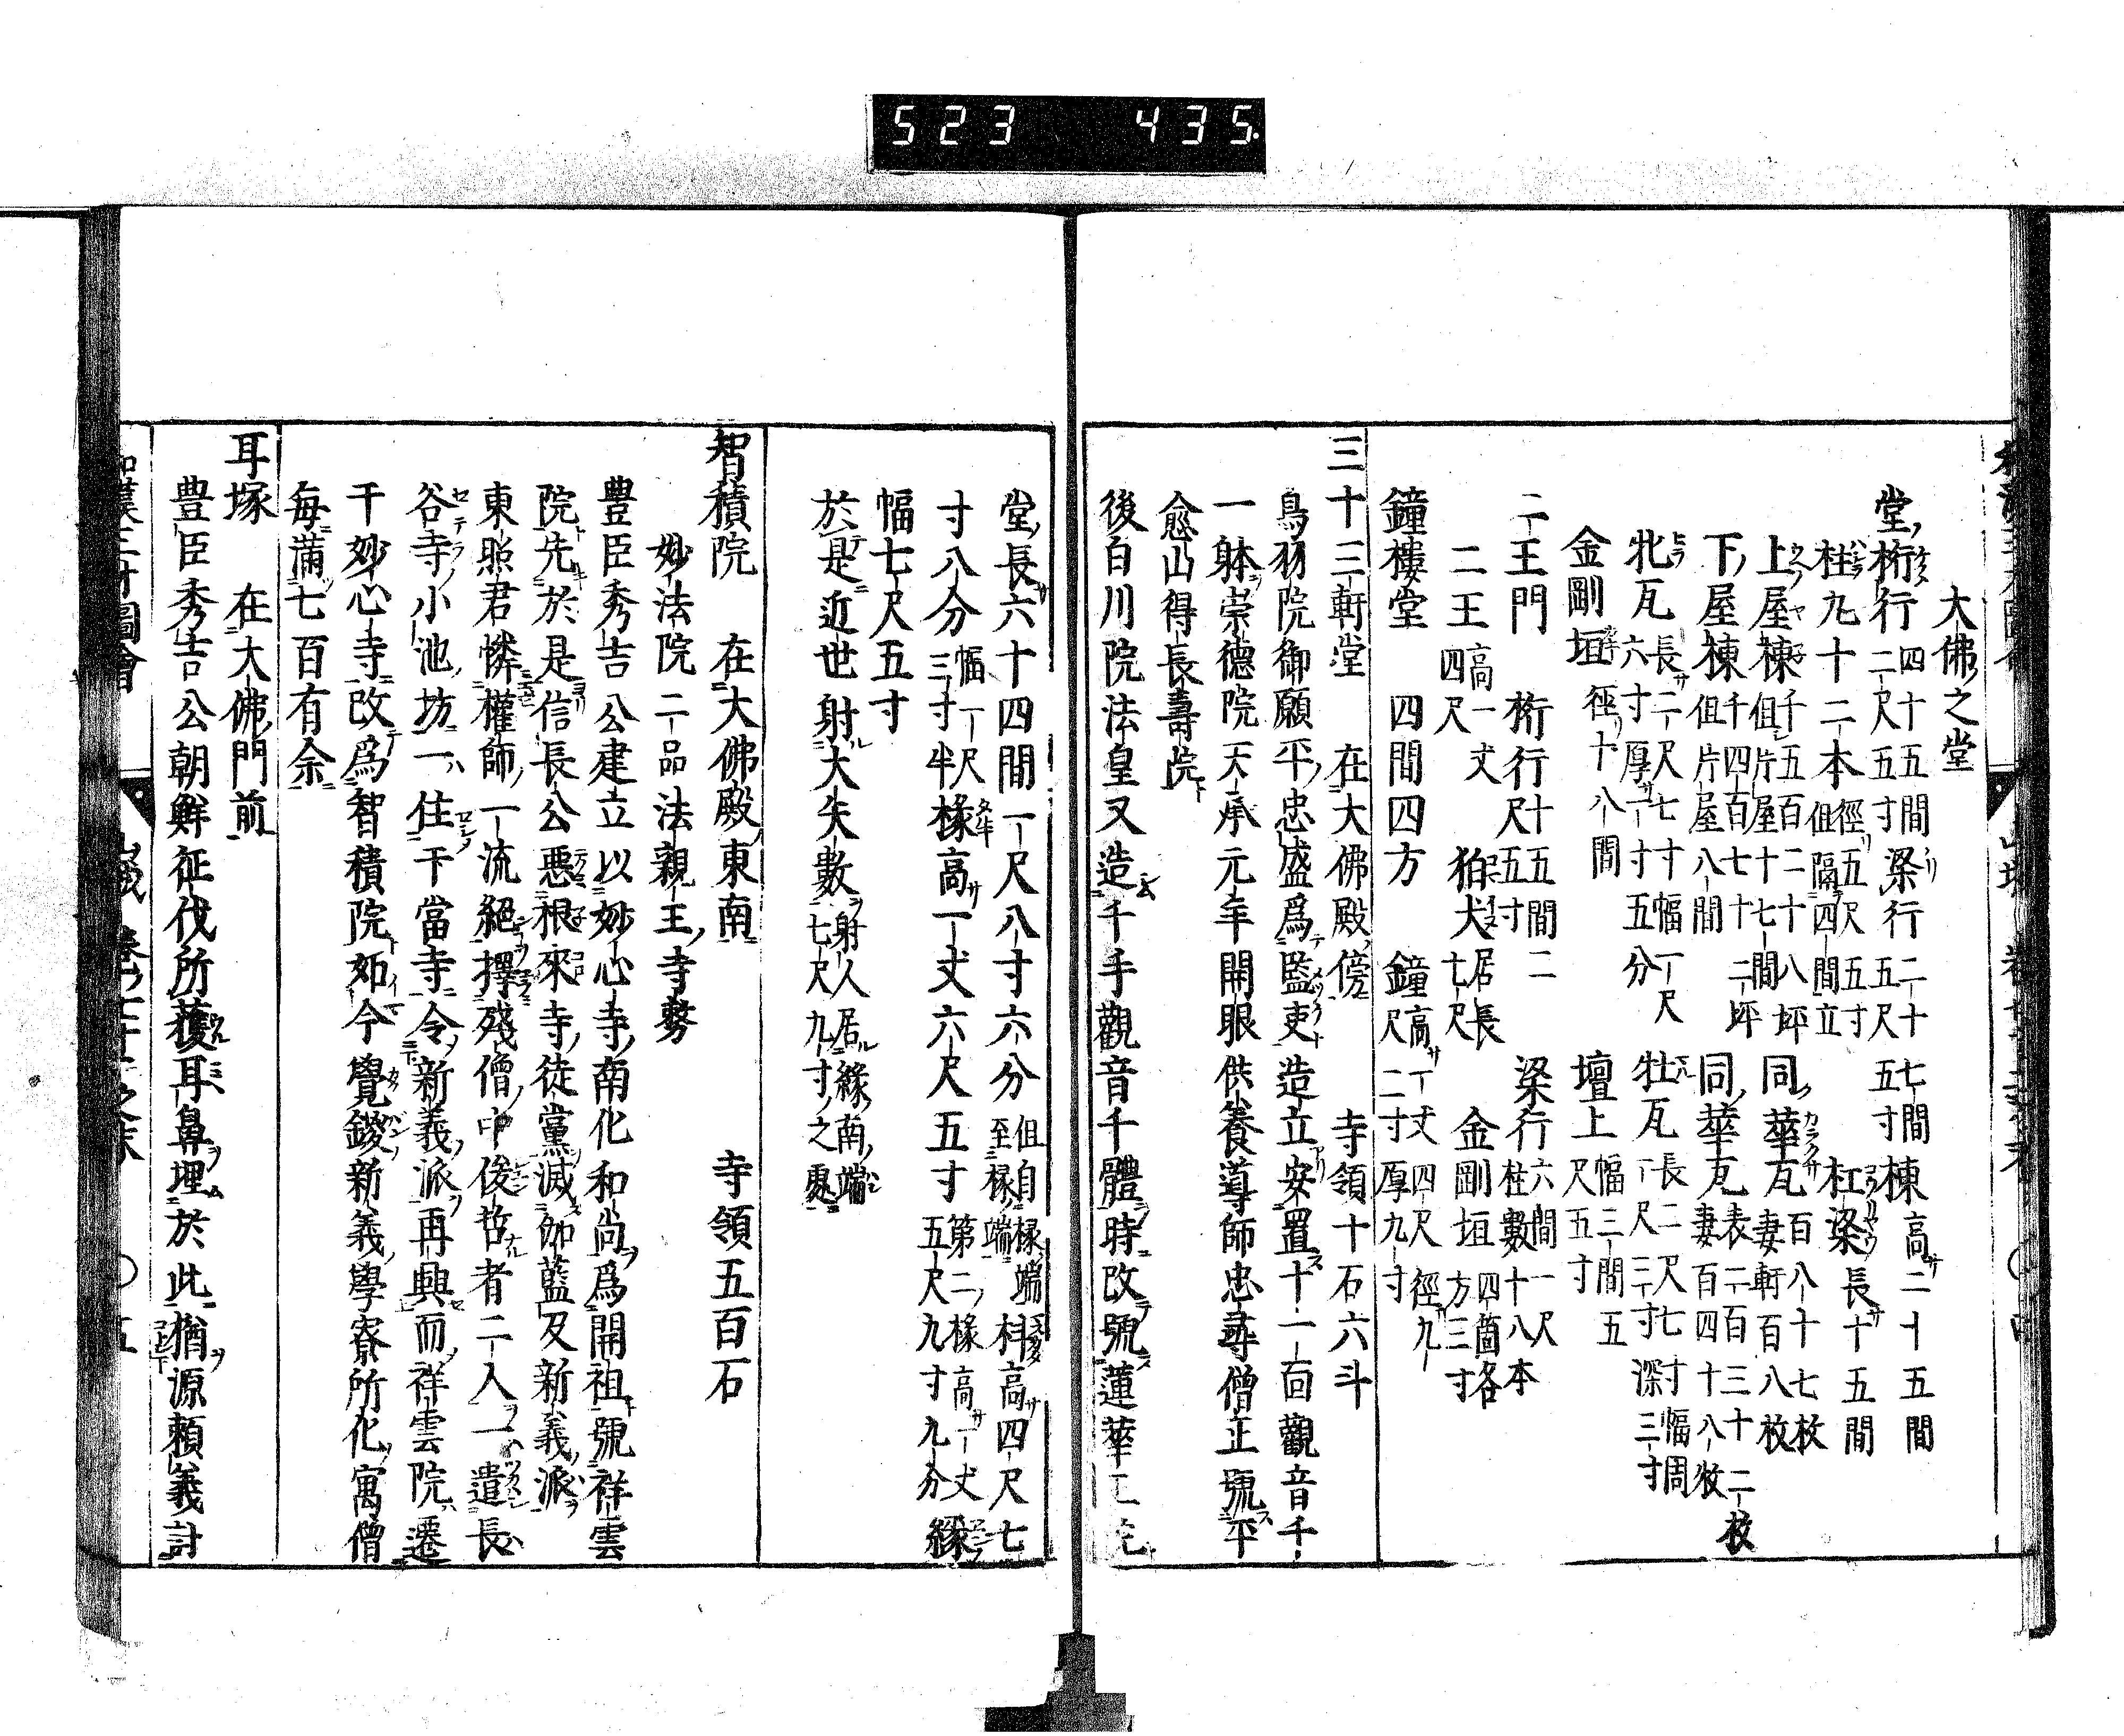 523 435
大佛之堂
堂 桁行四十五間二尺五寸 梁行二十七間五尺五寸 棟高二十五間
柱九十二本 徑五尺五寸但隔四間立 杠梁長十五間
上屋棟 千五百二十八坪但片屋十七間 同華瓦 百八十七枚妻軒百八枚
下屋棟 千四百七十二坪但片屋八間 同華瓦 表二百三十二枚妻百四十八枚
牝瓦 長二尺七寸幅一尺六寸厚一寸五分 牡瓦 長二尺七寸幅周一尺三寸深三寸
金剛垣 徑十八間 壇上 幅三間五尺五寸
二王門 桁行十五間二尺五寸 梁行六間一尺柱數十八本
二王 高一丈四尺 狛犬 居長七尺 金剛垣 四箇各方三寸
鐘樓堂 四間四方 鐘 高一丈四尺徑九尺二寸厚九寸
三十三軒堂 在大佛殿傍 寺領十石六斗
鳥羽院御願平忠盛爲監吏造立安置十一面觀音千
一躰崇德院天承元年開眼供養導師忠尋僧正號平
愈山得長壽院
後白川院法皇又造千手觀音千體時改號蓮華王院
堂長六十四間一尺八寸六分 但自椽端至椽端 枓高四尺七
寸八分 幅一尺三寸半 椽高一丈六尺五寸 第二椽高一丈五尺九寸九分 緣
幅七尺五寸
於是近世射大矢數 射人居緣南端七尺九寸之處
智積院 在大佛殿東南 寺領五百石
妙法院二品法親王寺務
豊臣秀吉公建立以妙心寺南化和尚爲開祖號祥雲
院先於是信長公惡根來寺徒黨滅伽藍及新義派
東照君憐權師一流絕擇殘僧中俊哲者二人一遣長
谷寺小池坊一住于當寺令新義派再興而祥雲院遷
于妙心寺改爲智積院如今覺鑁新義學寮所化寓僧
每滿七百有余
耳塚 在大佛門前
豊臣秀吉公朝鮮征伐所獲耳鼻埋於此猶源頼義計